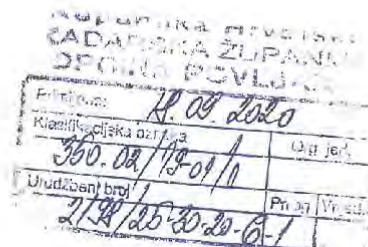 Republika Hrvatska
ZADARSKA ŽUPANIJA
OPĆINA POVLJANA
Primljeno:
09. 2020
Klasifikacijska oznaka Org. jed.
350-02/19-01/1
Urudžbeni broj Prilog Vrijed.
2198/25-30-20-6-1